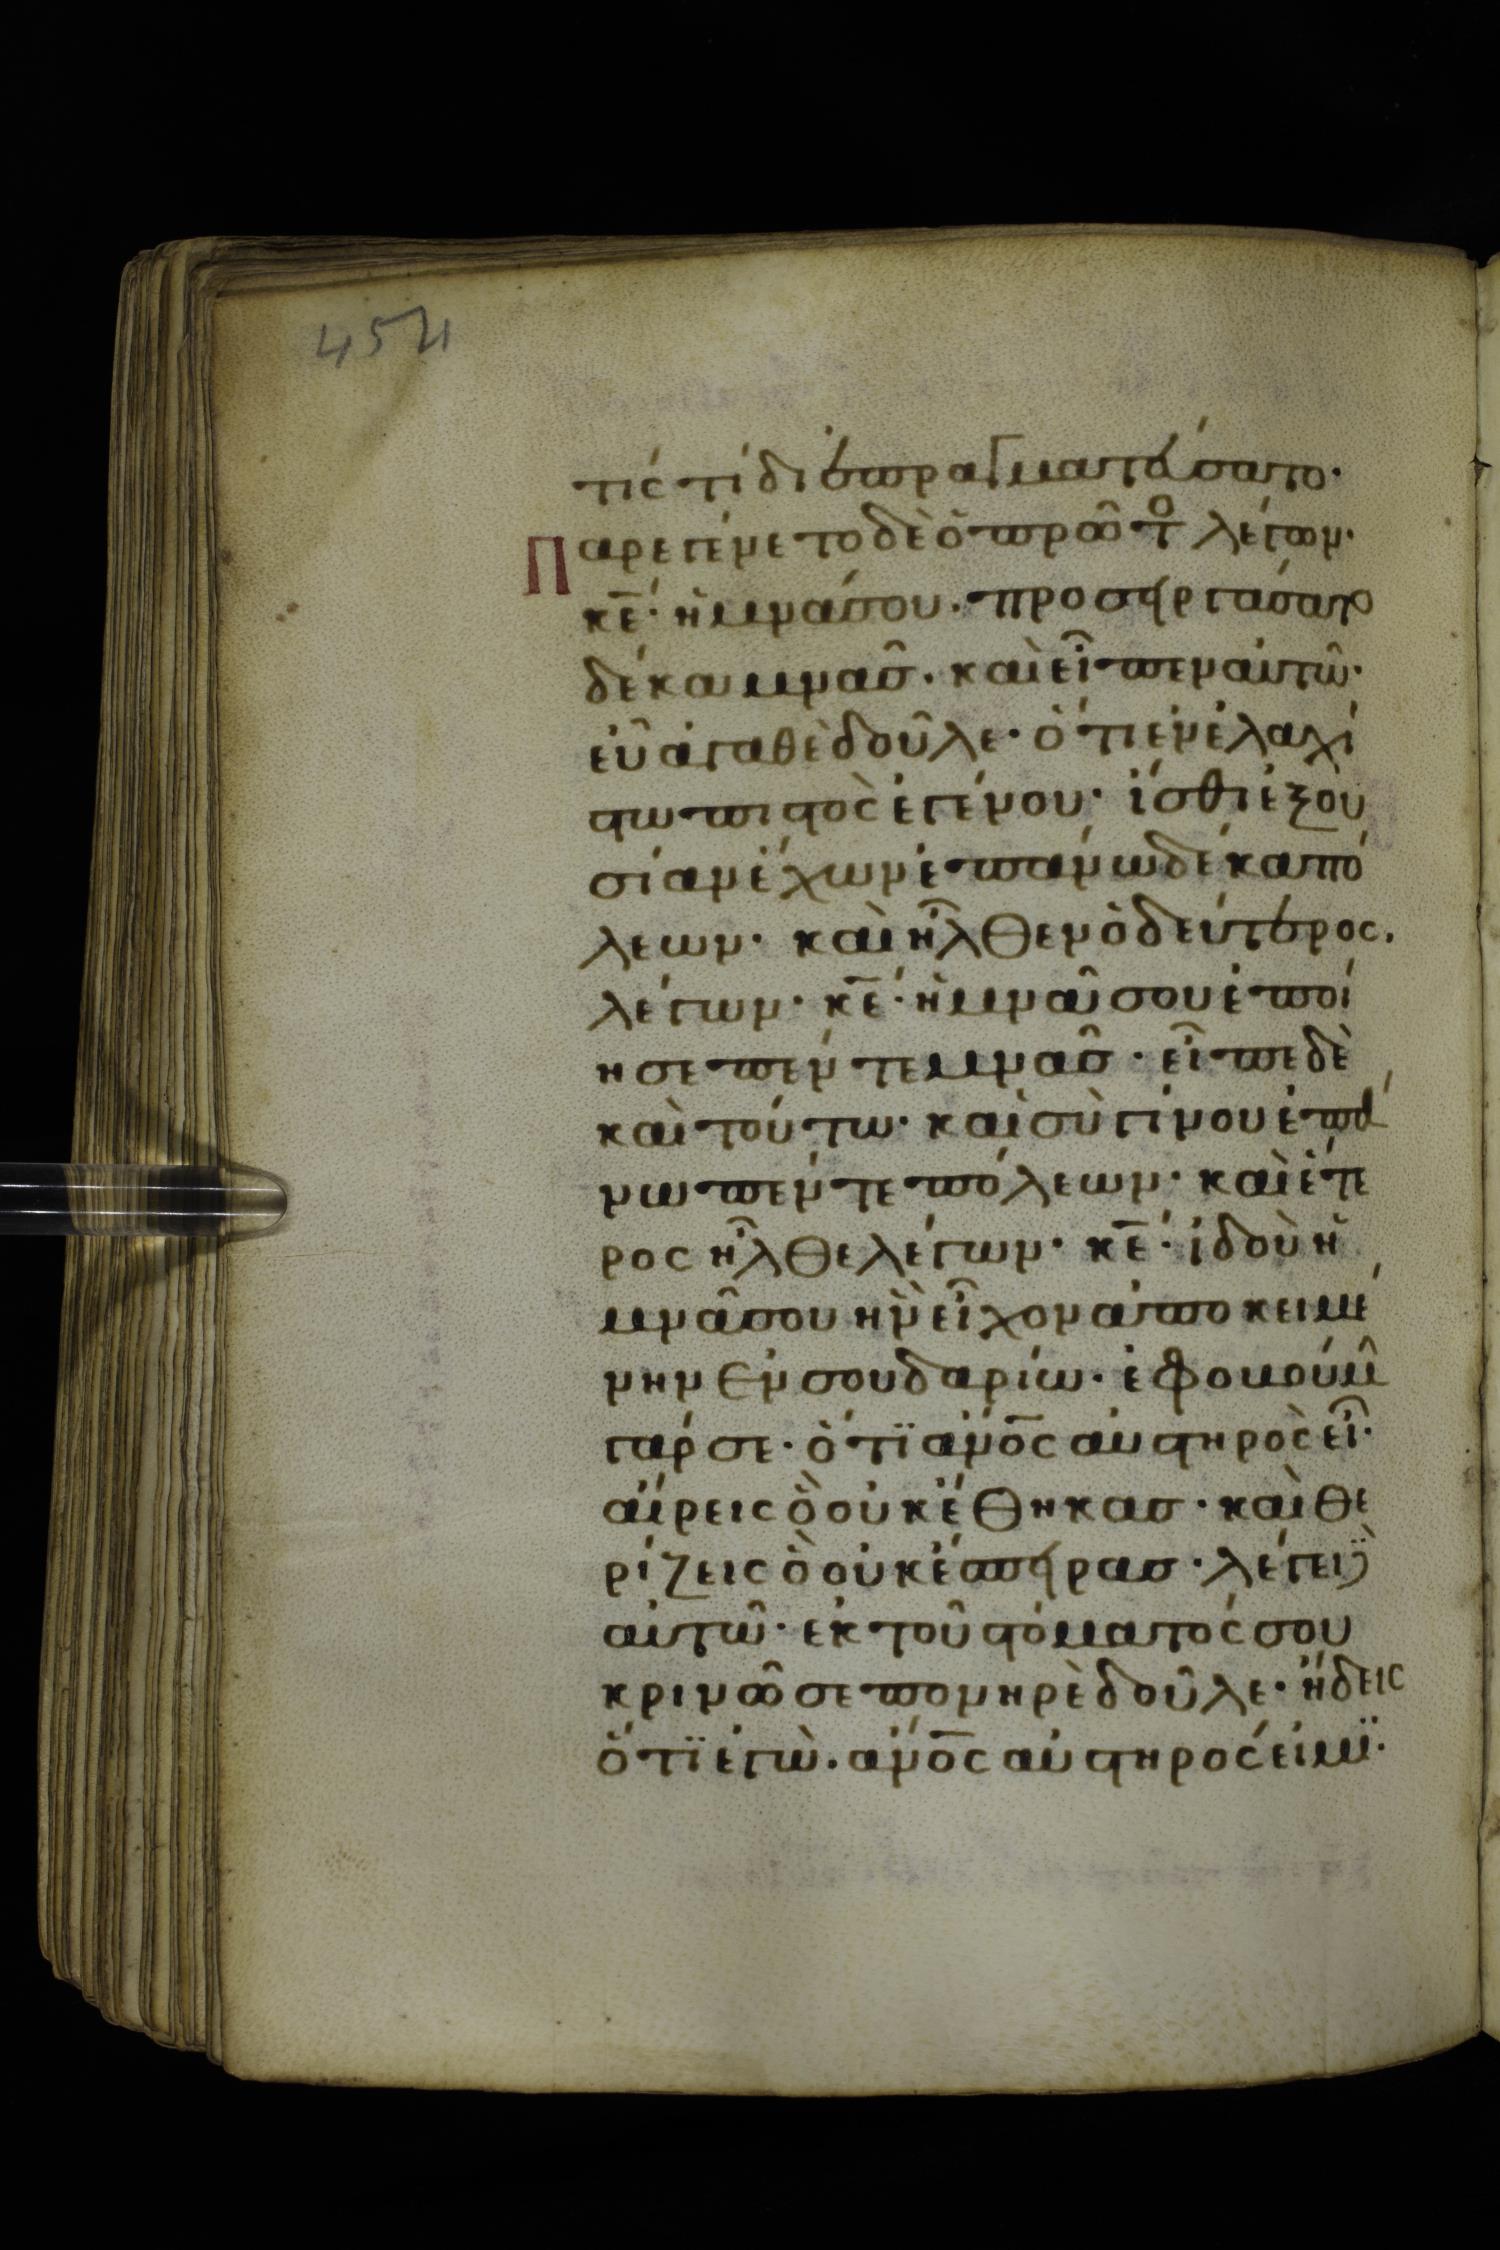 454
τίς τί διεπραγματεύσατο·
Παρεγένετο δὲ ὁ πρῶτος λέγων·
κε̄· ἡ μνᾶ σου· προσειργάσατο
δέκα μνᾶς· καὶ εἶπεν αὐτῶ·
εὖ ἀγαθὲ δοῦλε· ὅτι ἐν ἐλαχί
στω πιστὸς ἐγένου· ἴσθι ἐξου
σίαν ἔχων ἐπάνω δέκα πό
λεων· καὶ ἦλθεν ὁ δεύτερος·
λέγων· κε̄· ἡ μνᾶ σου ἐποί
ησε πέντε μνᾶς· εἶπε δὲ
καὶ τούτω· καὶ σὺ γίνου ἐπά
νω πέντε πόλεων· καὶ ἕτε
ρος ἦλθε λέγων· κε̄· ἰδοὺ ἡ
μνᾶ σου ἣν εἶχον ἀποκειμέ
νην ἐν σουδαρίω· ἐφοβούμ
γάρ σε· ὅτϊ ἀνο̄ς αὐστηρὸς εἶ·
αἴρεις ὃ οὐκ ἔθηκας· καὶ θε
ρίζεις ὃ οὐκ ἔσπειρας· λέγει
αὐτῶ· ἐκ τοῦ στόματός σου
κρινῶ σε πονηρὲ δοῦλε· ἤδεις
ὅτϊ ἐγὼ· ἀνο̄ς αὐστηρός εἰμϊ·